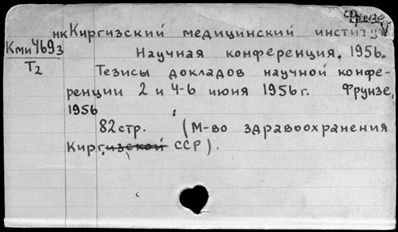 Фрунзе
нк Киргизский медицинский институт
Кми469з Научная конференция. 1956.
Т2 Тезисы докладов научной конфе-
ренции 2 и 4-6 июня 1956г. Фрунзе,
1956
82стр. (М-во здравоохранения
Киргизской ССР).